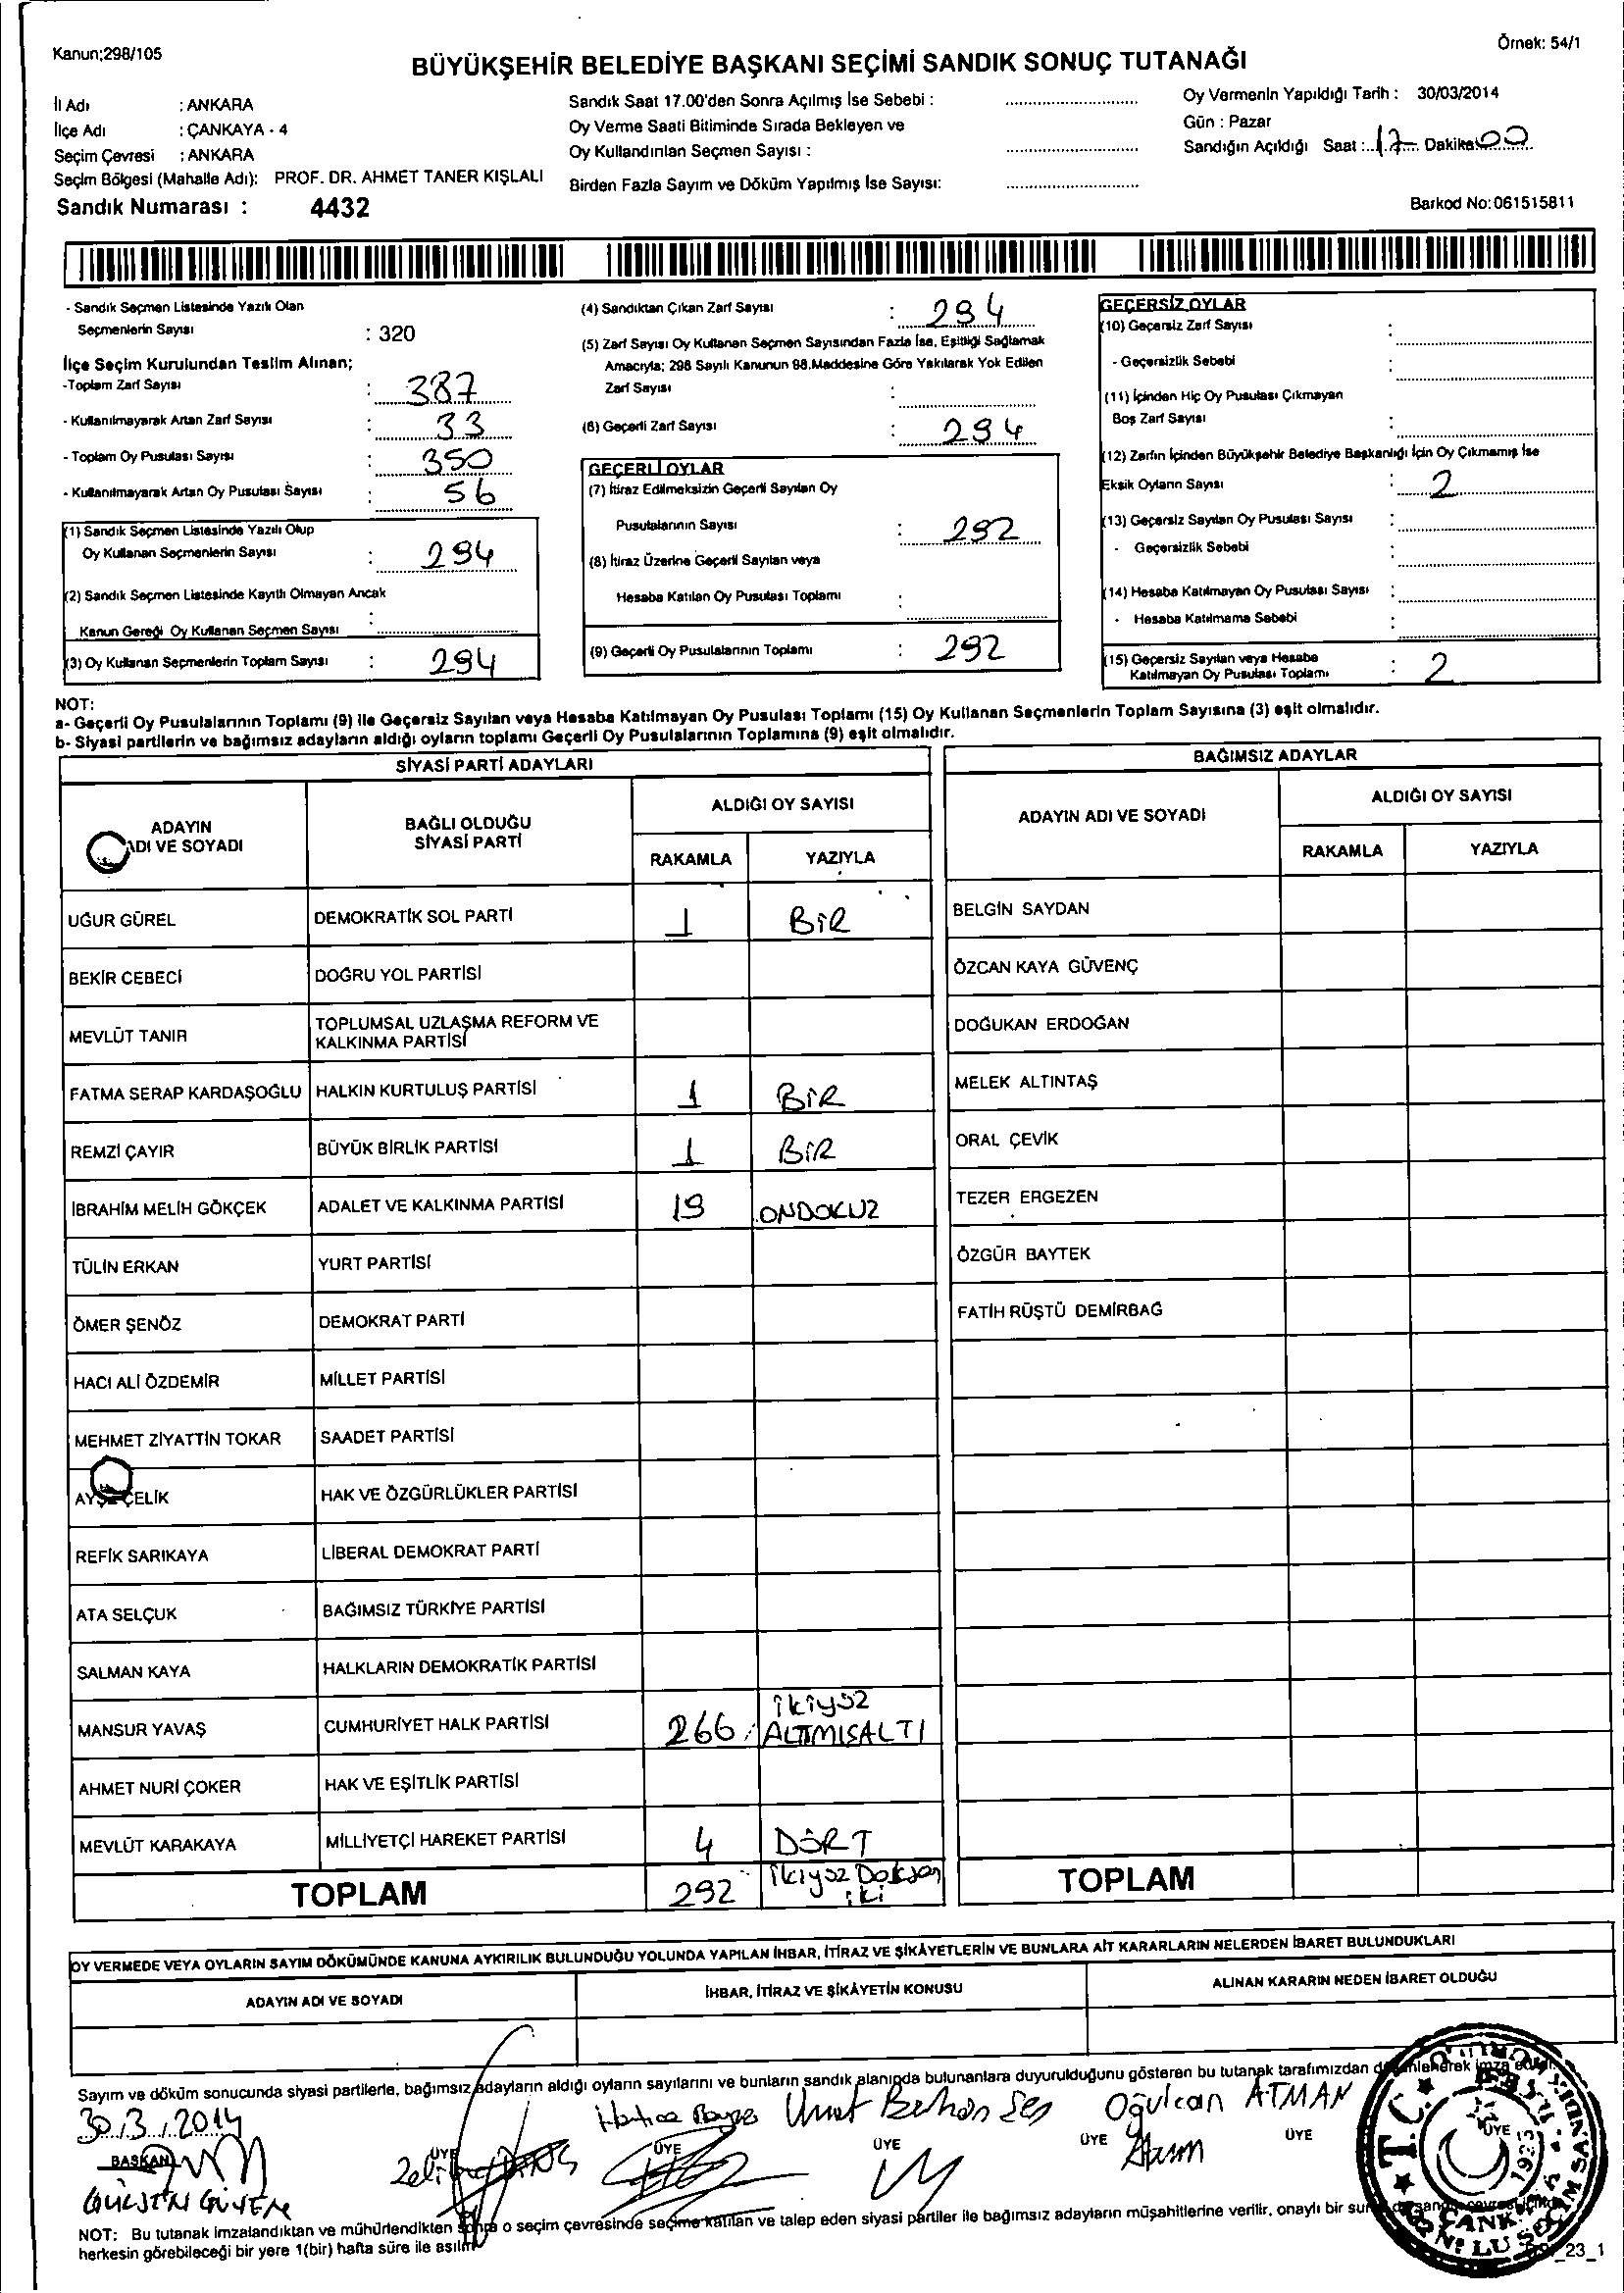 Kanun:298/105
Örnek: 54/1
BÜYÜKŞEHİR BELEDİYE BAŞKANI SEÇİMİ SANDIK SONUÇ TUTANAĞI
İl Adı : ANKARA
İlçe Adı : ÇANKAYA - 4
Seçim Çevresi : ANKARA
Seçim Bölgesi (Mahalle Adı): PROF. DR. AHMET TANER KIŞLALI
Sandık Numarası : 4432
Sandık Saat 17.00'den Sonra Açılmış İse Sebebi :
Oy Verme Saati Bitiminde Sırada Bekleyen ve
Oy Kullandırılan Seçmen Sayısı :
Birden Fazla Sayım ve Döküm Yapılmış İse Sayısı:
Oy Vermenin Yapıldığı Tarih : 30/03/2014
Gün : Pazar
Sandığın Açıldığı Saat : 17 Dakika 00
Barkod No:061515811
- Sandık Seçmen Listesinde Yazılı Olan
Seçmenlerin Sayısı : 320
İlçe Seçim Kurulundan Teslim Alınan;
-Toplam Zarf Sayısı : 387
- Kullanılmayarak Artan Zarf Sayısı : 33
- Toplam Oy Pusulası Sayısı : 350
- Kullanılmayarak Artan Oy Pusulası Sayısı : 56
(1) Sandık Seçmen Listesinde Yazılı Olup
Oy Kullanan Seçmenlerin Sayısı : 294
(2) Sandık Seçmen Listesinde Kayıtlı Olmayan Ancak
Kanun Gereği Oy Kullanan Seçmen Sayısı :
(3) Oy Kullanan Seçmenlerin Toplam Sayısı : 294
(4) Sandıktan Çıkan Zarf Sayısı : 294
(5) Zarf Sayısı Oy Kullanan Seçmen Sayısından Fazla İse, Eşitliği Sağlamak
Amacıyla; 298 Sayılı Kanunun 98.Maddesine Göre Yakılarak Yok Edilen
Zarf Sayısı :
(6) Geçerli Zarf Sayısı : 294
GEÇERLİ OYLAR
(7) İtiraz Edilmeksizin Geçerli Sayılan Oy
Pusulalarının Sayısı : 292
(8) İtiraz Üzerine Geçerli Sayılan veya
Hesaba Katılan Oy Pusulası Toplamı :
(9) Geçerli Oy Pusulalarının Toplamı : 292
GEÇERSİZ OYLAR
(10) Geçersiz Zarf Sayısı :
- Geçersizlik Sebebi :
(11) İçinden Hiç Oy Pusulası Çıkmayan
Boş Zarf Sayısı :
(12) Zarfın İçinden Büyükşehir Belediye Başkanlığı İçin Oy Çıkmamış İse
Eksik Oyların Sayısı : 2
(13) Geçersiz Sayılan Oy Pusulası Sayısı :
- Geçersizlik Sebebi :
(14) Hesaba Katılmayan Oy Pusulası Sayısı :
- Hesaba Katılmama Sebebi :
(15) Geçersiz Sayılan veya Hesaba
Katılmayan Oy Pusulası Toplamı : 2
NOT:
a- Geçerli Oy Pusulalarının Toplamı (9) ile Geçersiz Sayılan veya Hesaba Katılmayan Oy Pusulası Toplamı (15) Oy Kullanan Seçmenlerin Toplam Sayısına (3) eşit olmalıdır.
b- Siyasi partilerin ve bağımsız adayların aldığı oyların toplamı Geçerli Oy Pusulalarının Toplamına (9) eşit olmalıdır.
SİYASİ PARTİ ADAYLARI
ADAYIN
ADI VE SOYADI
BAĞLI OLDUĞU
SİYASİ PARTİ
ALDIĞI OY SAYISI
RAKAMLA YAZIYLA
UĞUR GÜREL DEMOKRATİK SOL PARTİ 1 BİR
BEKİR CEBECİ DOĞRU YOL PARTİSİ
MEVLÜT TANIR TOPLUMSAL UZLAŞMA REFORM VE
KALKINMA PARTİSİ
FATMA SERAP KARDAŞOĞLU HALKIN KURTULUŞ PARTİSİ 1 BİR
REMZİ ÇAYIR BÜYÜK BİRLİK PARTİSİ 1 BİR
İBRAHİM MELİH GÖKÇEK ADALET VE KALKINMA PARTİSİ 19 ONDOKUZ
TÜLİN ERKAN YURT PARTİSİ
ÖMER ŞENÖZ DEMOKRAT PARTİ
HACI ALİ ÖZDEMİR MİLLET PARTİSİ
MEHMET ZİYATTİN TOKAR SAADET PARTİSİ
AYŞE ÇELİK HAK VE ÖZGÜRLÜKLER PARTİSİ
REFİK SARIKAYA LİBERAL DEMOKRAT PARTİ
ATA SELÇUK BAĞIMSIZ TÜRKİYE PARTİSİ
SALMAN KAYA HALKLARIN DEMOKRATİK PARTİSİ
MANSUR YAVAŞ CUMHURİYET HALK PARTİSİ 266 İkiyüz
ALTMIŞALTI
AHMET NURİ ÇOKER HAK VE EŞİTLİK PARTİSİ
MEVLÜT KARAKAYA MİLLİYETÇİ HAREKET PARTİSİ 4 DÖRT
TOPLAM 292 İkiyüz Doksan
iki
BAĞIMSIZ ADAYLAR
ADAYIN ADI VE SOYADI
ALDIĞI OY SAYISI
RAKAMLA YAZIYLA
BELGİN SAYDAN
ÖZCAN KAYA GÜVENÇ
DOĞUKAN ERDOĞAN
MELEK ALTINTAŞ
ORAL ÇEVİK
TEZER ERGEZEN
ÖZGÜR BAYTEK
FATİH RÜŞTÜ DEMİRBAĞ
TOPLAM
OY VERMEDE VEYA OYLARIN SAYIM DÖKÜMÜNDE KANUNA AYKIRILIK BULUNDUĞU YOLUNDA YAPILAN İHBAR, İTİRAZ VE ŞİKÂYETLERİN VE BUNLARA AİT KARARLARIN NELERDEN İBARET BULUNDUKLARI
ADAYIN ADI VE SOYADI
İHBAR, İTİRAZ VE ŞİKÂYETİN KONUSU
ALINAN KARARIN NEDEN İBARET OLDUĞU
Sayım ve döküm sonucunda siyasi partilerle, bağımsız adayların aldığı oyların sayılarını ve bunların sandık alanında bulunanlara duyurulduğunu gösteren bu tutanak tarafımızdan düzenlenerek imza edildi.
30/3/2014
Hatice Umut Oğulcan ATMAN
BAŞKAN ÜYE ÜYE ÜYE ÜYE ÜYE ÜYE
T.C. 1923
NOT: Bu tutanak imzalandıktan ve mühürlendikten sonra o seçim çevresinde seçime katılan ve talep eden siyasi partiler ile bağımsız adayların müşahitlerine verilir, onaylı bir
herkesin görebileceği bir yere 1(bir) hafta süre ile asılır.
_23_1